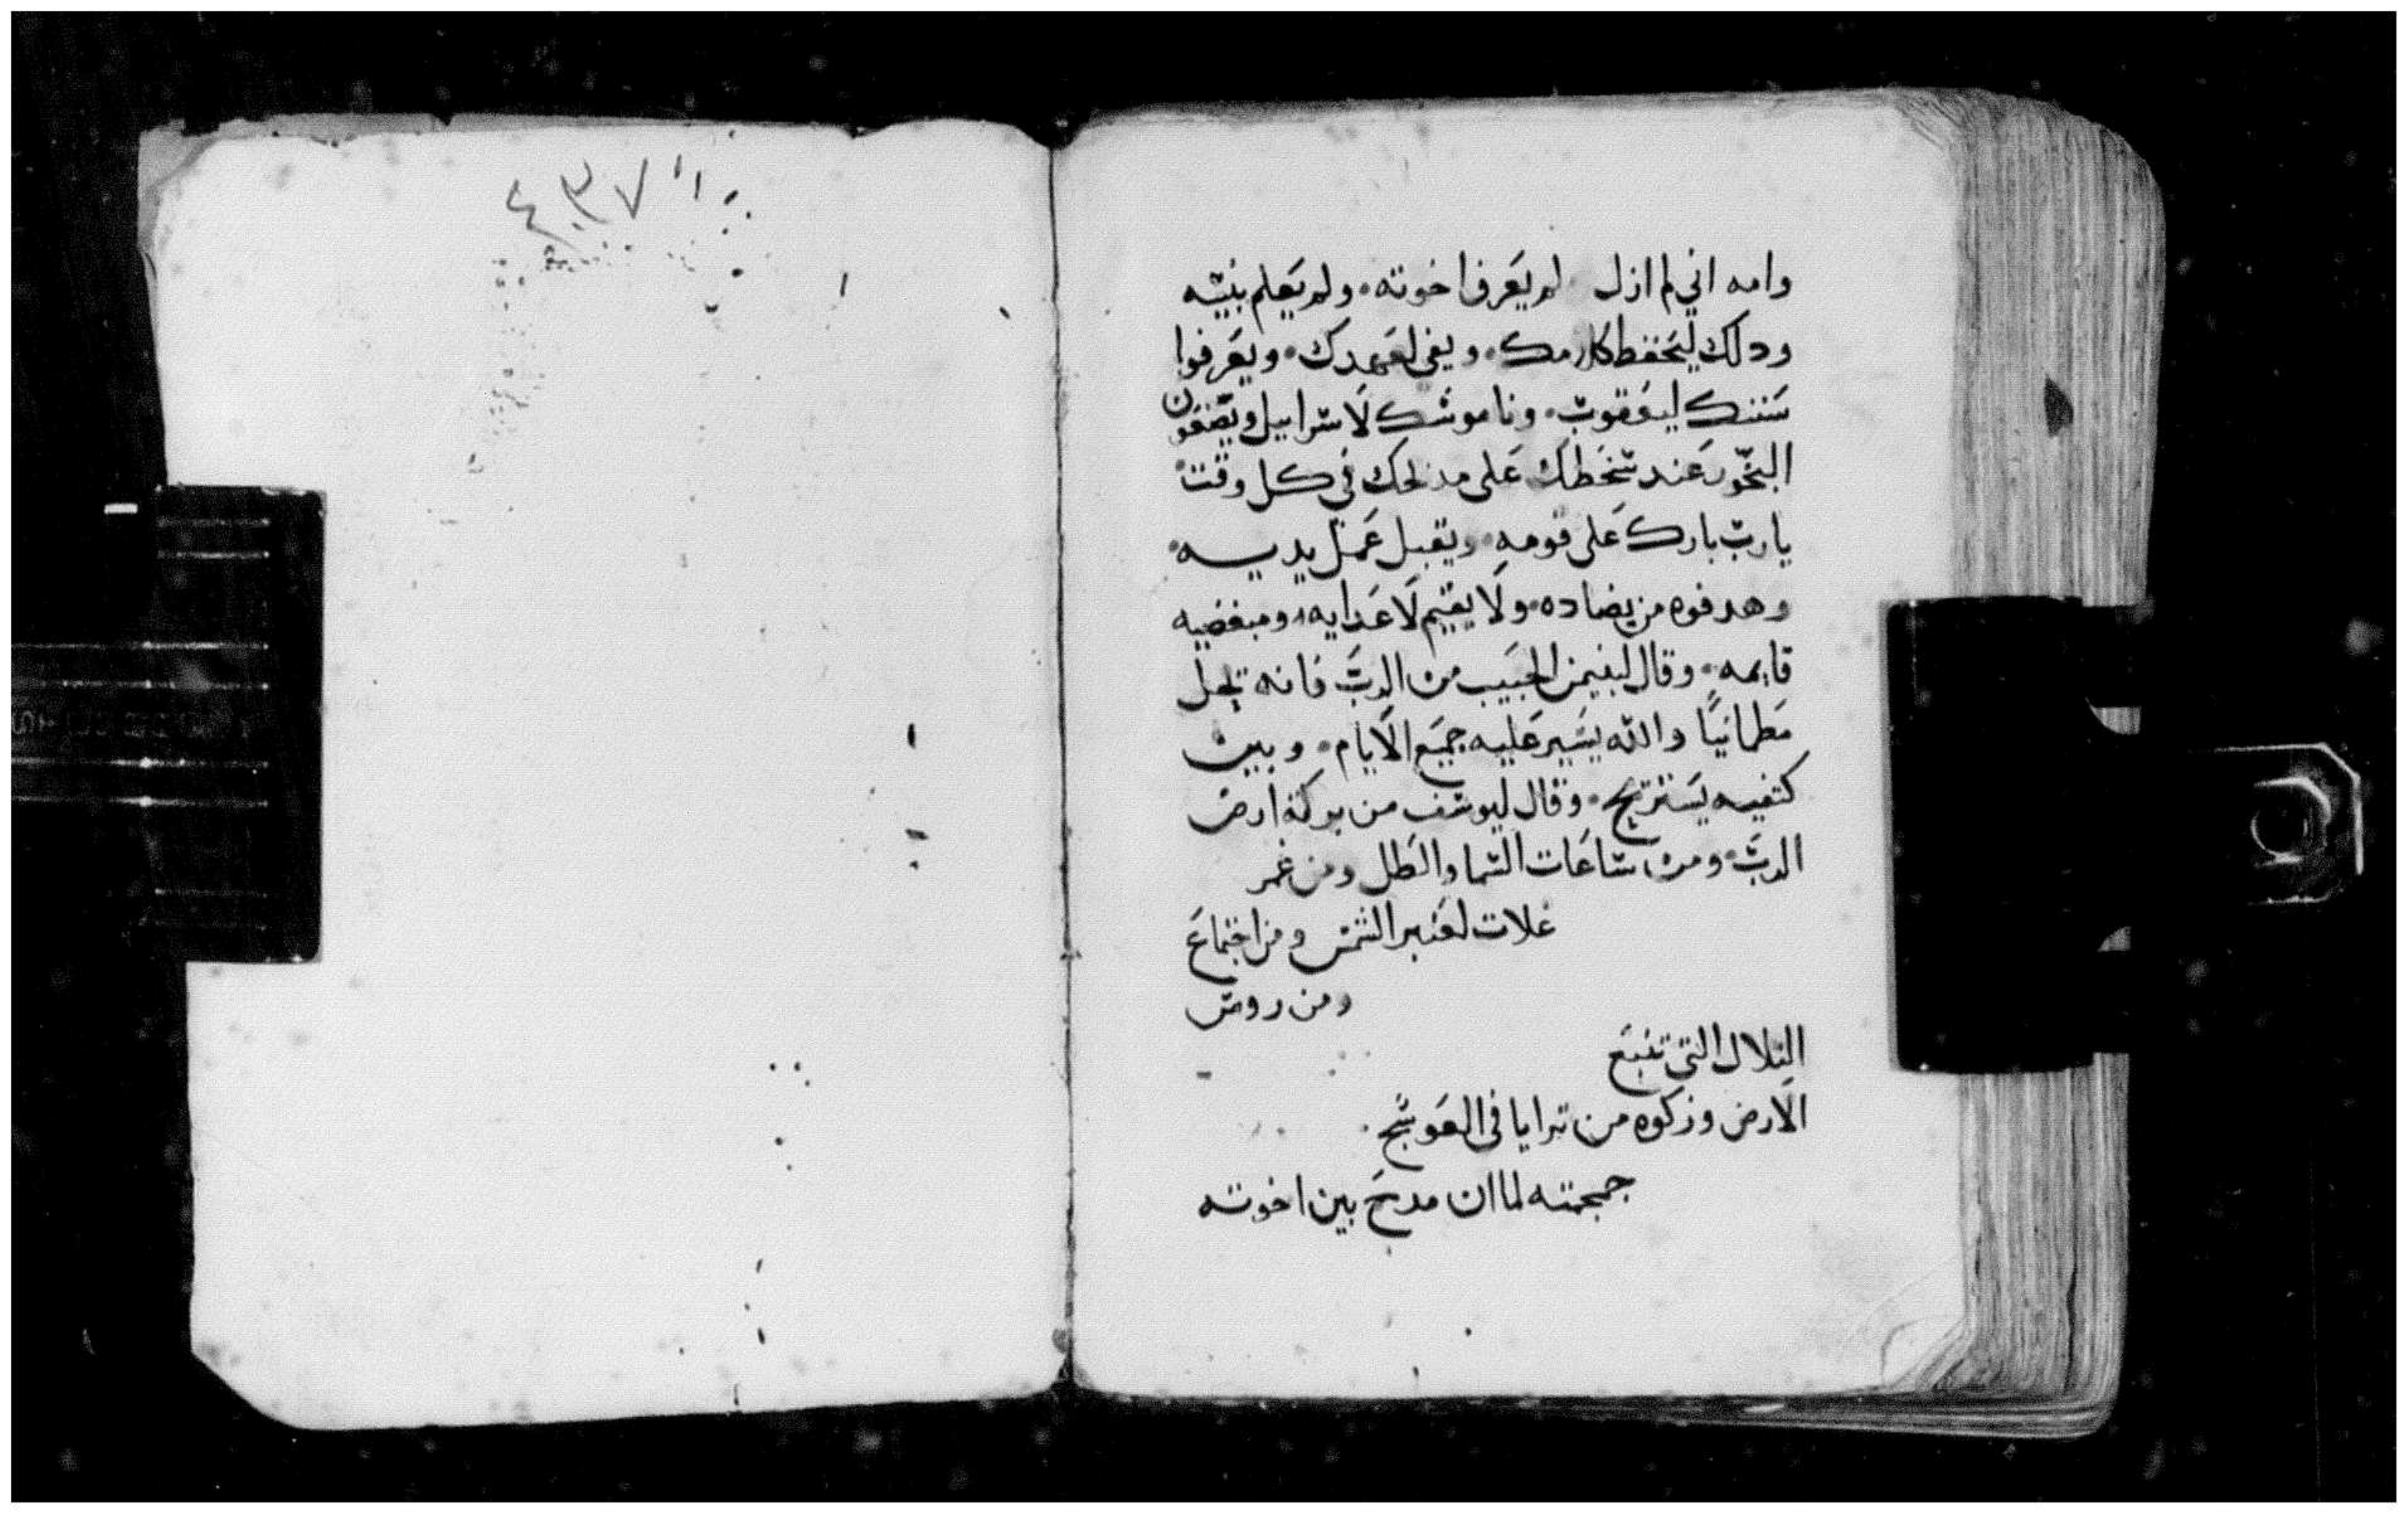 وامه اني لم ازل لم يعرف اخوته. ولم يعلم بنيه
ودلك ليحفظ كلامك. ويفي لعهدك. ويعرفوا
سننك ليعقوب. وناموسك لاسراييل ويضعون
البخور عند سخطك على مدبحك في كل وقت
يارب بارك على قومه. وتقبل عمل يديه
وهد قوه من يضاده. ولا يقيم لاعدايه ومبغضيه
قايمه. وقال لبنيمن الحبيب من الرب فانه يحل
مطمانيًا والله يسير عليه جميع الايام. وبين
كتفيه يستريح. وقال ليوسف من بركة ارض
الرب. ومن ساعات السما والطل ومن غمر
غلات لعنبر الشمس ومن اجتماع
ومن روس
التلال التي تنبع
الارض وزكوه من ترايا في العوسج.
جمجمته لما ان مدح بين اخوته
٤٣٧